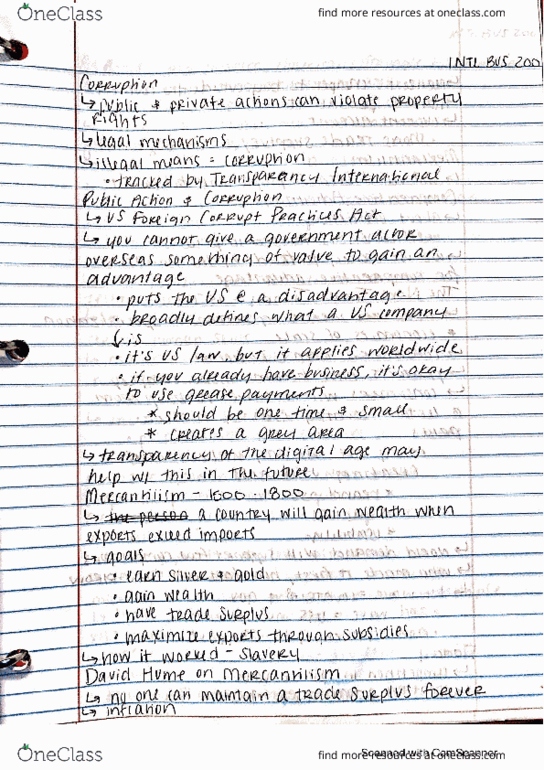 OneClass
find more resources at oneclass.com
INTL BUS 200
Corruption
↳ public & private actions can violate property
rights
↳ legal mechanisms
↳ illegal means = corruption
• tracked by Transparency International
Public Action & Corruption
↳ US Foreign Corrupt Practices Act
↳ you cannot give a government actor
overseas something of value to gain an
advantage
• puts the US @ a disadvantage
• broadly defines what a US company
↳ is
• it's US law, but it applies worldwide
• if you already have business, it's okay
to use grease payments
* should be one time & small
* creates a grey area
↳ transparency of the digital age may
help w/ this in the future
Mercantilism - 1600 - 1800
↳ the person a country will gain wealth when
exports exceed imports
↳ goals
• earn silver & gold
• gain wealth
• have trade surplus
• maximize exports through subsidies
↳ how it worked - slavery
David Hume on Mercantilism
↳ no one can maintain a trade surplus forever
↳ inflation
OneClass
find more resources at oneclass.com
Scanned with CamScanner